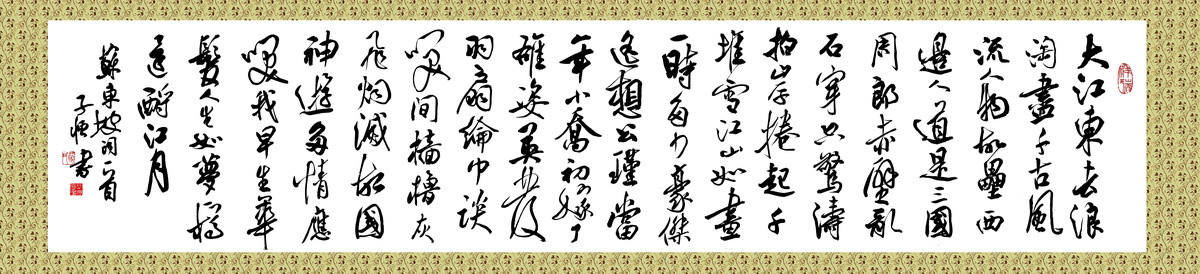 大江東去浪
淘盡千古風
流人物故壘西
邊人道是三國
周郎赤壁亂
石穿空驚濤
拍岸捲起千
堆雪江山如畫
一時多少豪傑
遙想公瑾當
年小喬初嫁了
雄姿英發
羽扇綸巾談
笑間檣櫓灰
飛烟滅故國
神遊多情應
笑我早生華
髮人生如夢一樽
還酹江月
蘇東坡詞一首
子恒書